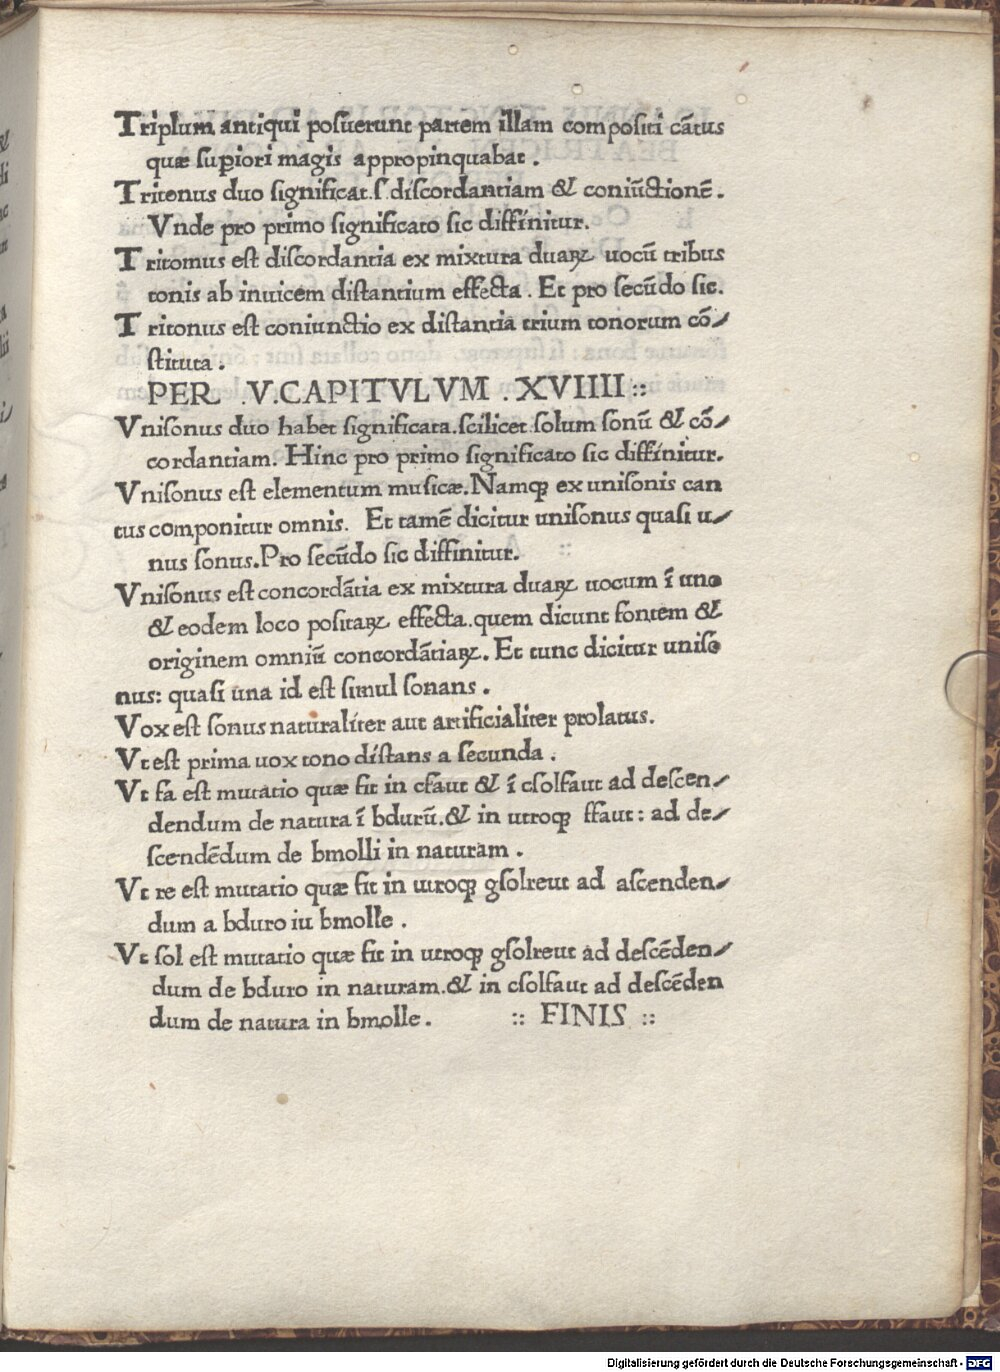 Triplum antiqui posuerunt partem illam compositi cātus
quæ supiori magis appropinquabat .
Tritonus duo significat.ſ.discordantiam & coniūctionē .
Vnde pro primo significato sic diffinitur.
Tritomus est discordantia ex mixtura duaꝝ uocū tribus
tonis ab inuicem distantium effecta . Et pro secūdo sic.
Tritonus est coniunctio ex distantia trium tonorum cō/
stituta .
PER .V.CAPITVLVM .XVIIII ::
Vnisonus duo habet significata.scilicet solum sonū & cō/
cordantiam. Hinc pro primo significato sic diffinitur.
Vnisonus est elementum musicæ.Namqꝫ ex unisonis can
tus componitur omnis. Et tamē dicitur unisonus quasi u/
nus sonus.Pro secūdo sic diffinitur.
Vnisonus est concordātia ex mixtura duaꝝ uocum ī uno
& eodem loco positaꝝ effecta.quem dicunt fontem &
originem omniū concordātiaꝝ. Et tunc dicitur uniso
nus: quasi una id est simul sonans .
Vox est sonus naturaliter aut artificialiter prolatus.
Vt est prima uox tono distans a secunda .
Vt fa est mutatio quæ fit in cfaut & ī csolfaut ad descen/
dendum de natura ī bdurū.& in utroqꝫ ffaut : ad de/
scendēdum de bmolli in naturam .
Vt re est mutatio quæ fit in utroqꝫ gsolreut ad ascenden/
dum a bduro iu bmolle .
Vt sol est mutatio quæ fit in utroqꝫ gsolreut ad descēden/
dum de bduro in naturam.& in csolfaut ad descēden
dum de natura in bmolle . :: FINIS ::
Digitalisierung gefördert durch die Deutsche Forschungsgemeinschaft - DFG